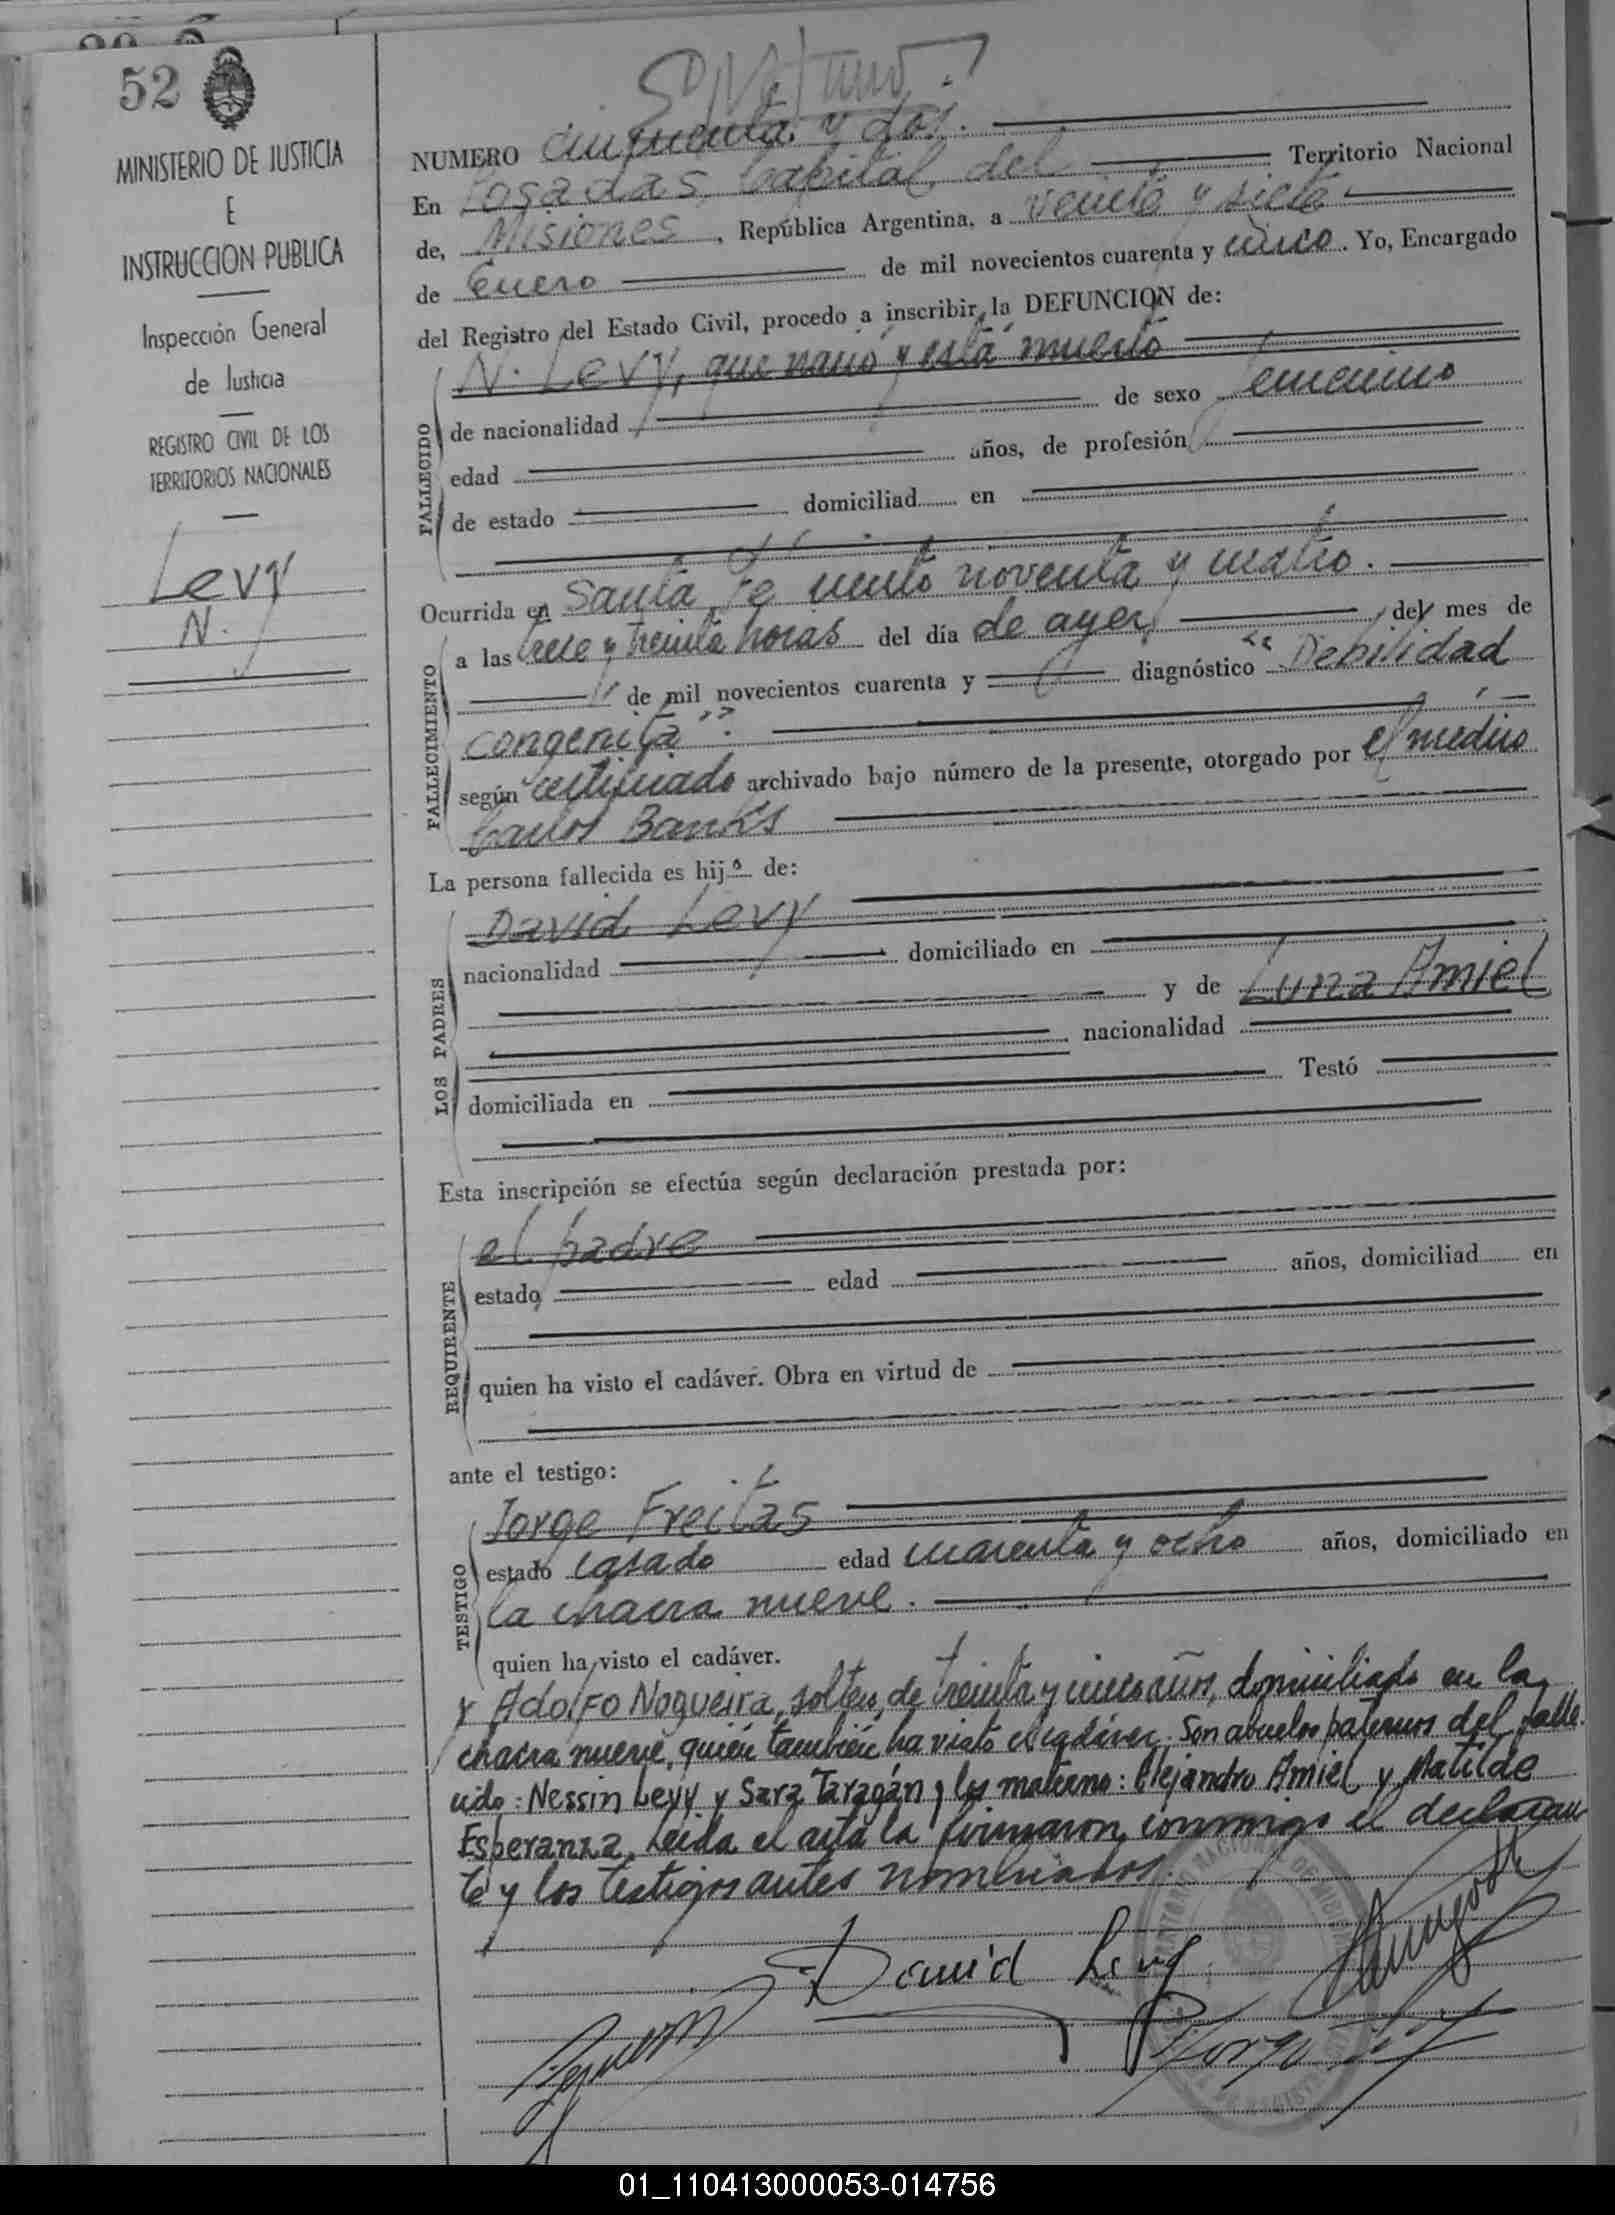 52
MINISTERIO DE JUSTICIA
E
INSTRUCCION PUBLICA
Inspección General
de Justicia
REGISTRO CIVIL DE LOS
TERRITORIOS NACIONALES
Levy
N.
NUMERO cincuenta y dos.
En Posadas, Capital del Territorio Nacional
de, Misiones, República Argentina, a veinte y siete
de Enero de mil novecientos cuarenta y cinco. Yo, Encargado
del Registro del Estado Civil, procedo a inscribir la DEFUNCION de:
FALLECIDO
N. Levy, que nació y está muerto
de nacionalidad de sexo femenino
edad años, de profesión
de estado domiciliad en
Ocurrida en Santa Fe ciento noventa y cuatro.
FALLECIMIENTO
a las trece y treinta horas del día de ayer, del mes de
de mil novecientos cuarenta y diagnóstico "Debilidad
congenita".
según certificado archivado bajo número de la presente, otorgado por el médico
Carlos Banks
La persona fallecida es hija de:
LOS PADRES
David Levy
nacionalidad domiciliado en
y de Luna Amiel
nacionalidad
domiciliada en Testó
Esta inscripción se efectúa según declaración prestada por:
REQUIRENTE
el padre
estado edad años, domiciliad en
quien ha visto el cadáver. Obra en virtud de
ante el testigo:
TESTIGO
Jorge Freitas
estado casado edad cuarenta y ocho años, domiciliado en
la chacra nueve.
quien ha visto el cadáver.
y Adolfo Nogueira, soltero, de treinta y cinco años, domiciliado en la
chacra nueve, quién también ha visto el cadáver. Son abuelos paternos del falle-
cido: Nessin Levy y Sara Taragán y los materno: Alejandro Amiel y Matilde
Esperanza. Leida el acta la firmaron conmigo el declaran
te y los testigos antes nombrados.
David Levy
Jorge
01_110413000053-014756